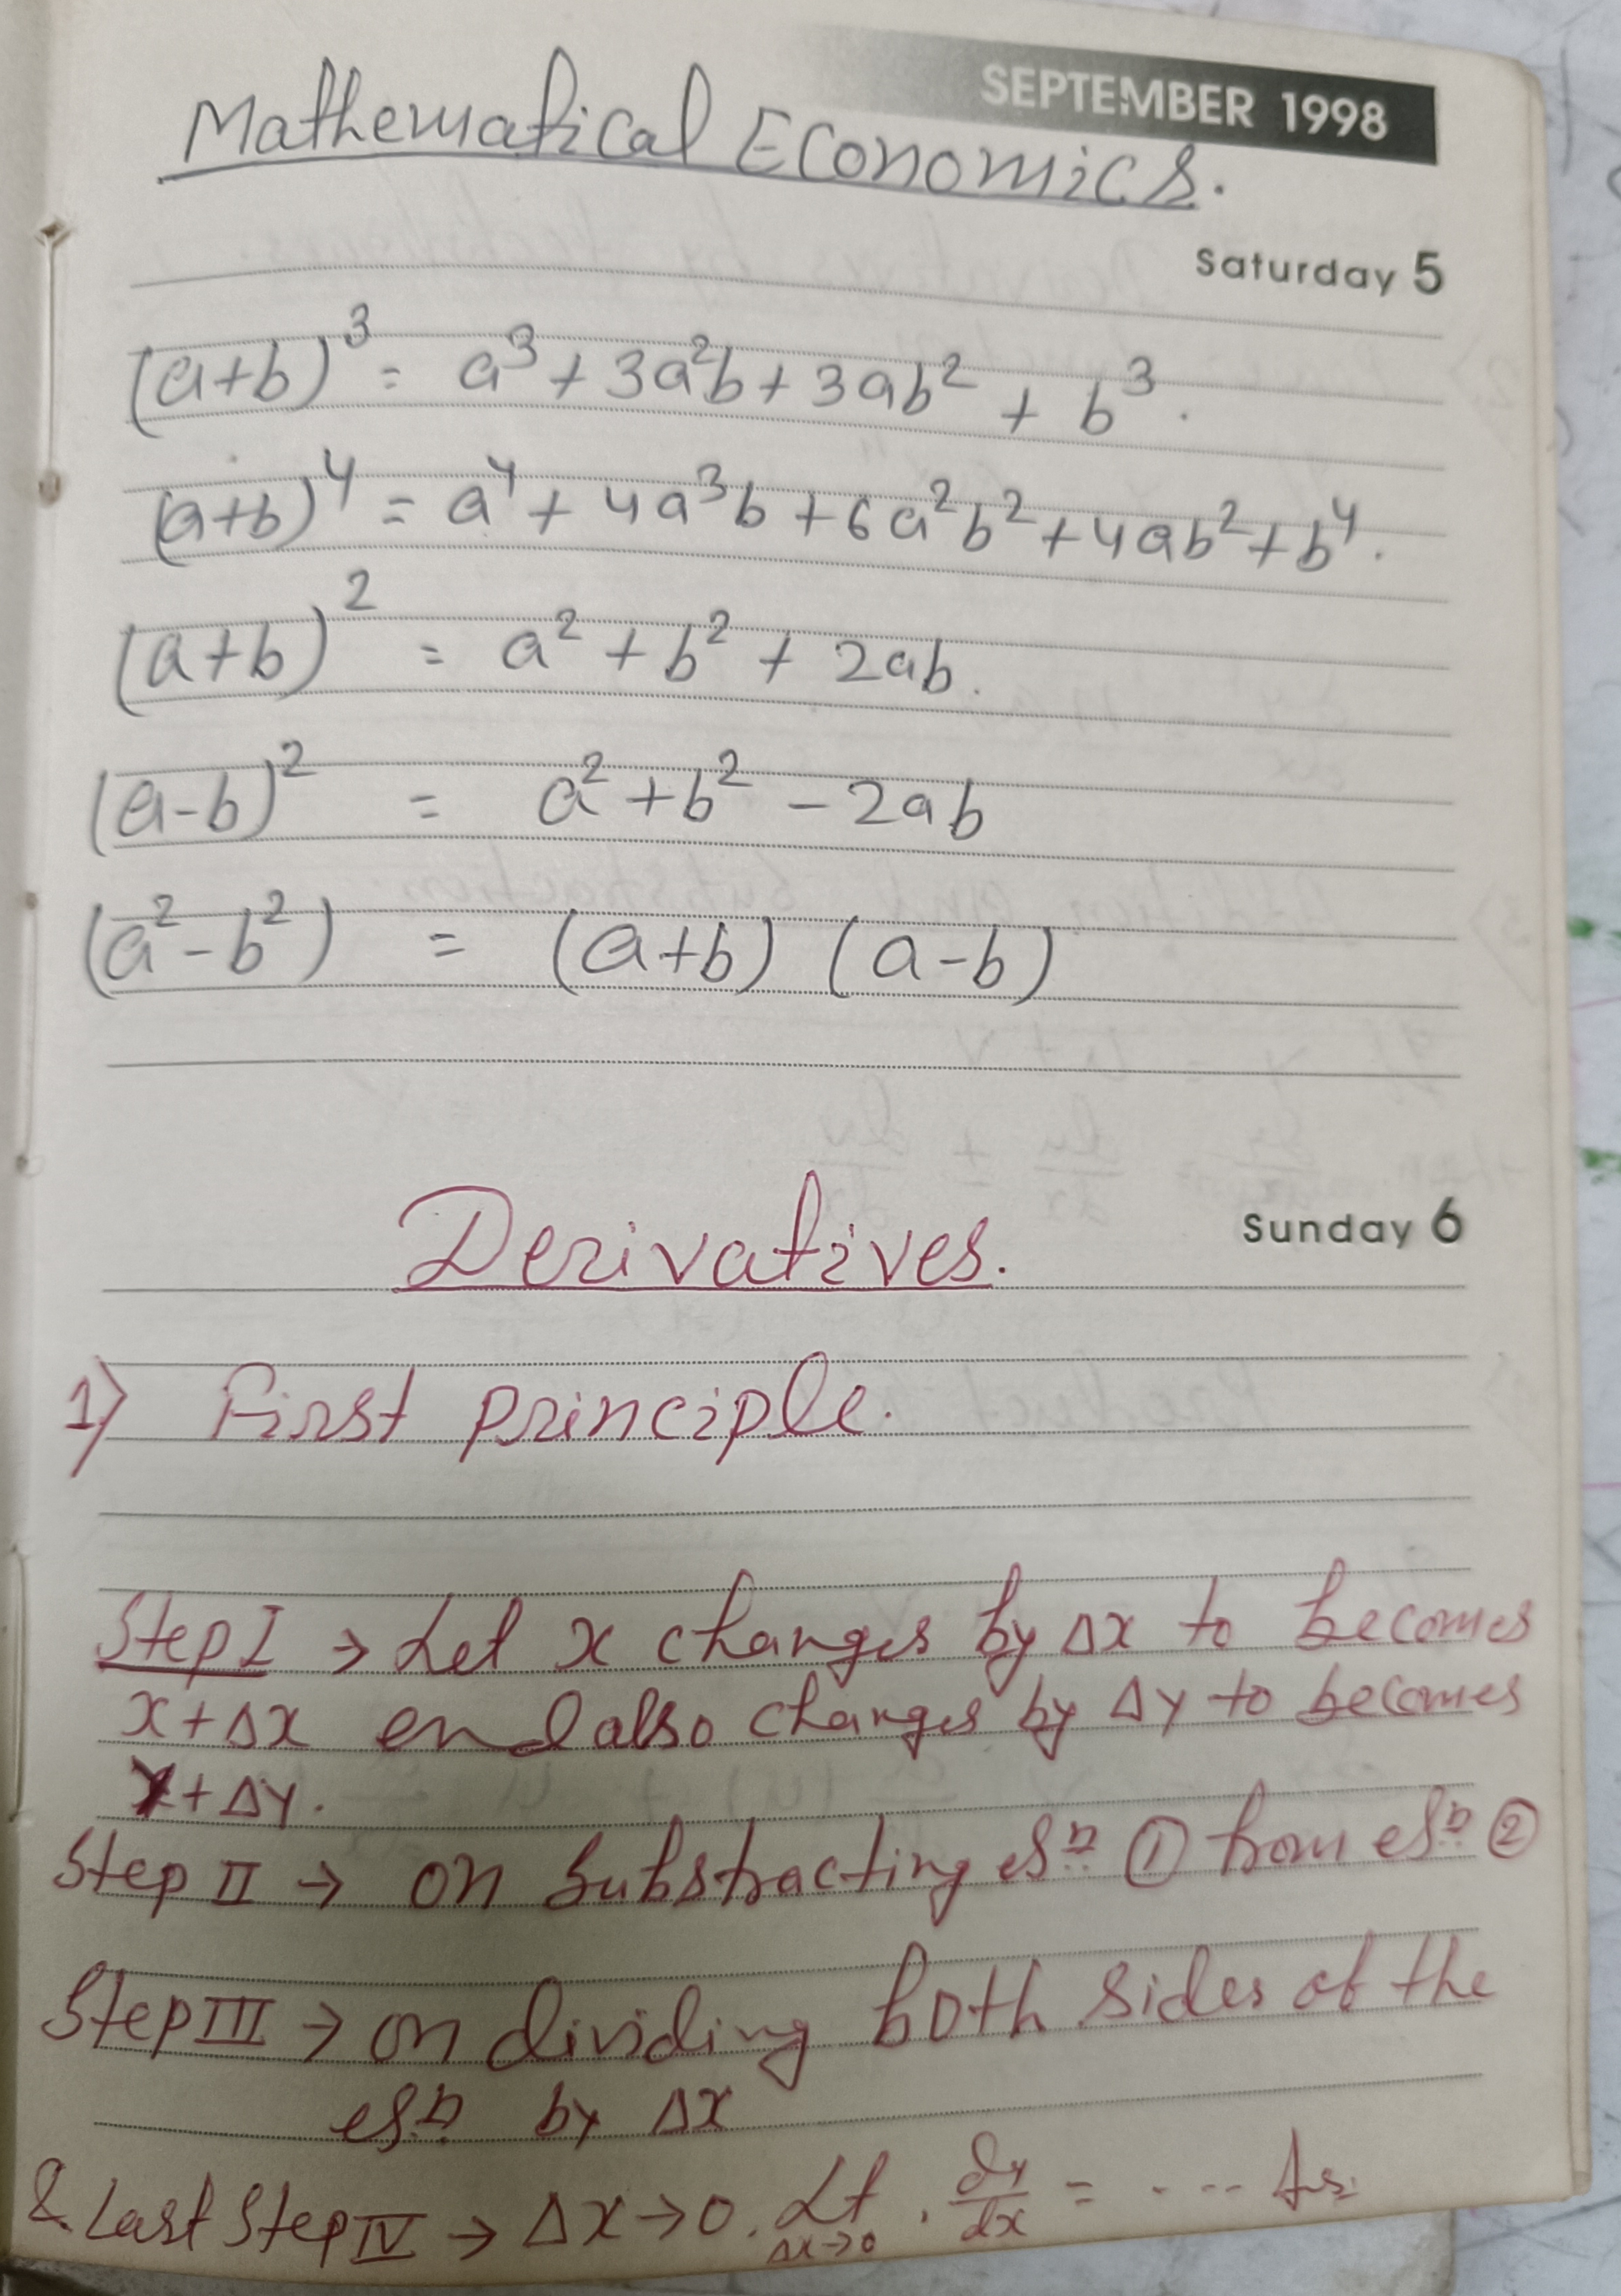 SEPTEMBER 1998
Mathematical Economics.
Saturday 5
(a+b)³ = a³ + 3a²b + 3ab² + b³.
(a+b)⁴ = a⁴ + 4a³b + 6a²b² + 4ab² + b⁴.
(a+b)² = a² + b² + 2ab.
(a-b)² = a² + b² - 2ab
(a²-b²) = (a+b) (a-b)
Derivatives.
Sunday 6
1) First principle.
Step I → Let x changes by Δx to becomes
x+Δx and also changes by Δy to becomes
y+Δy.
Step II → on Substracting eqⁿ ① from eqⁿ ②
Step III → on dividing both sides of the
eqⁿ by Δx
& Last Step IV → Δx→0. Lt Δx→0 . dy/dx = .... Ans